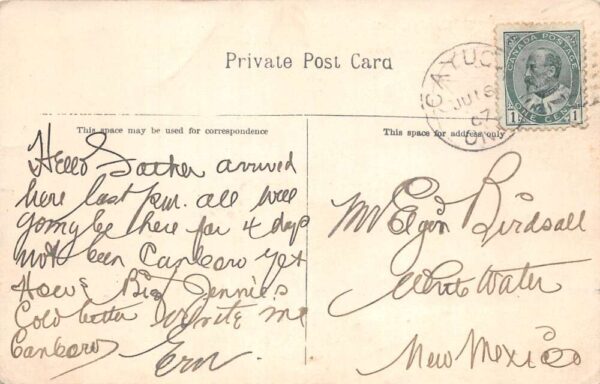 Private Post Card
CAYUG
JU 16
07
ON
CANADA POSTAGE
1 ONE CENT 1
This space may be used for correspondence
This space for address only
Hello Father arrived
here last p.m. all well
going be here for 4 days
not been Canboro yet
How's Big Jennie's
Cold better Write me
Canboro
Ern
Mr Elgin Birdsall
White Water
New Mexico